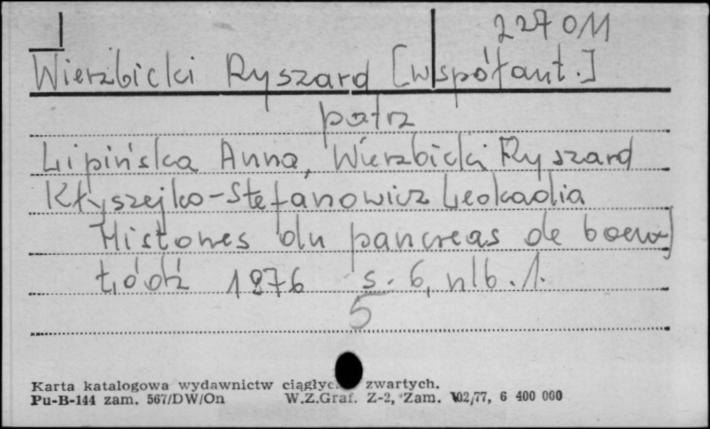 227011
Wierzbicki Ryszard [współaut.]
patrz
Lipińska Anna, Wierzbicki Ryszard
Kłyszejko-Stefanowicz Leokadia
Histones du pancreas de boeuf
Łódź 1976 s. 6, nlb. 1.
5
Karta katalogowa wydawnictw zwartych.
Pu-B-144 zam. 567/DW/On W.Z.Graf. Z-2, Zam. 102/77, 6 400 000